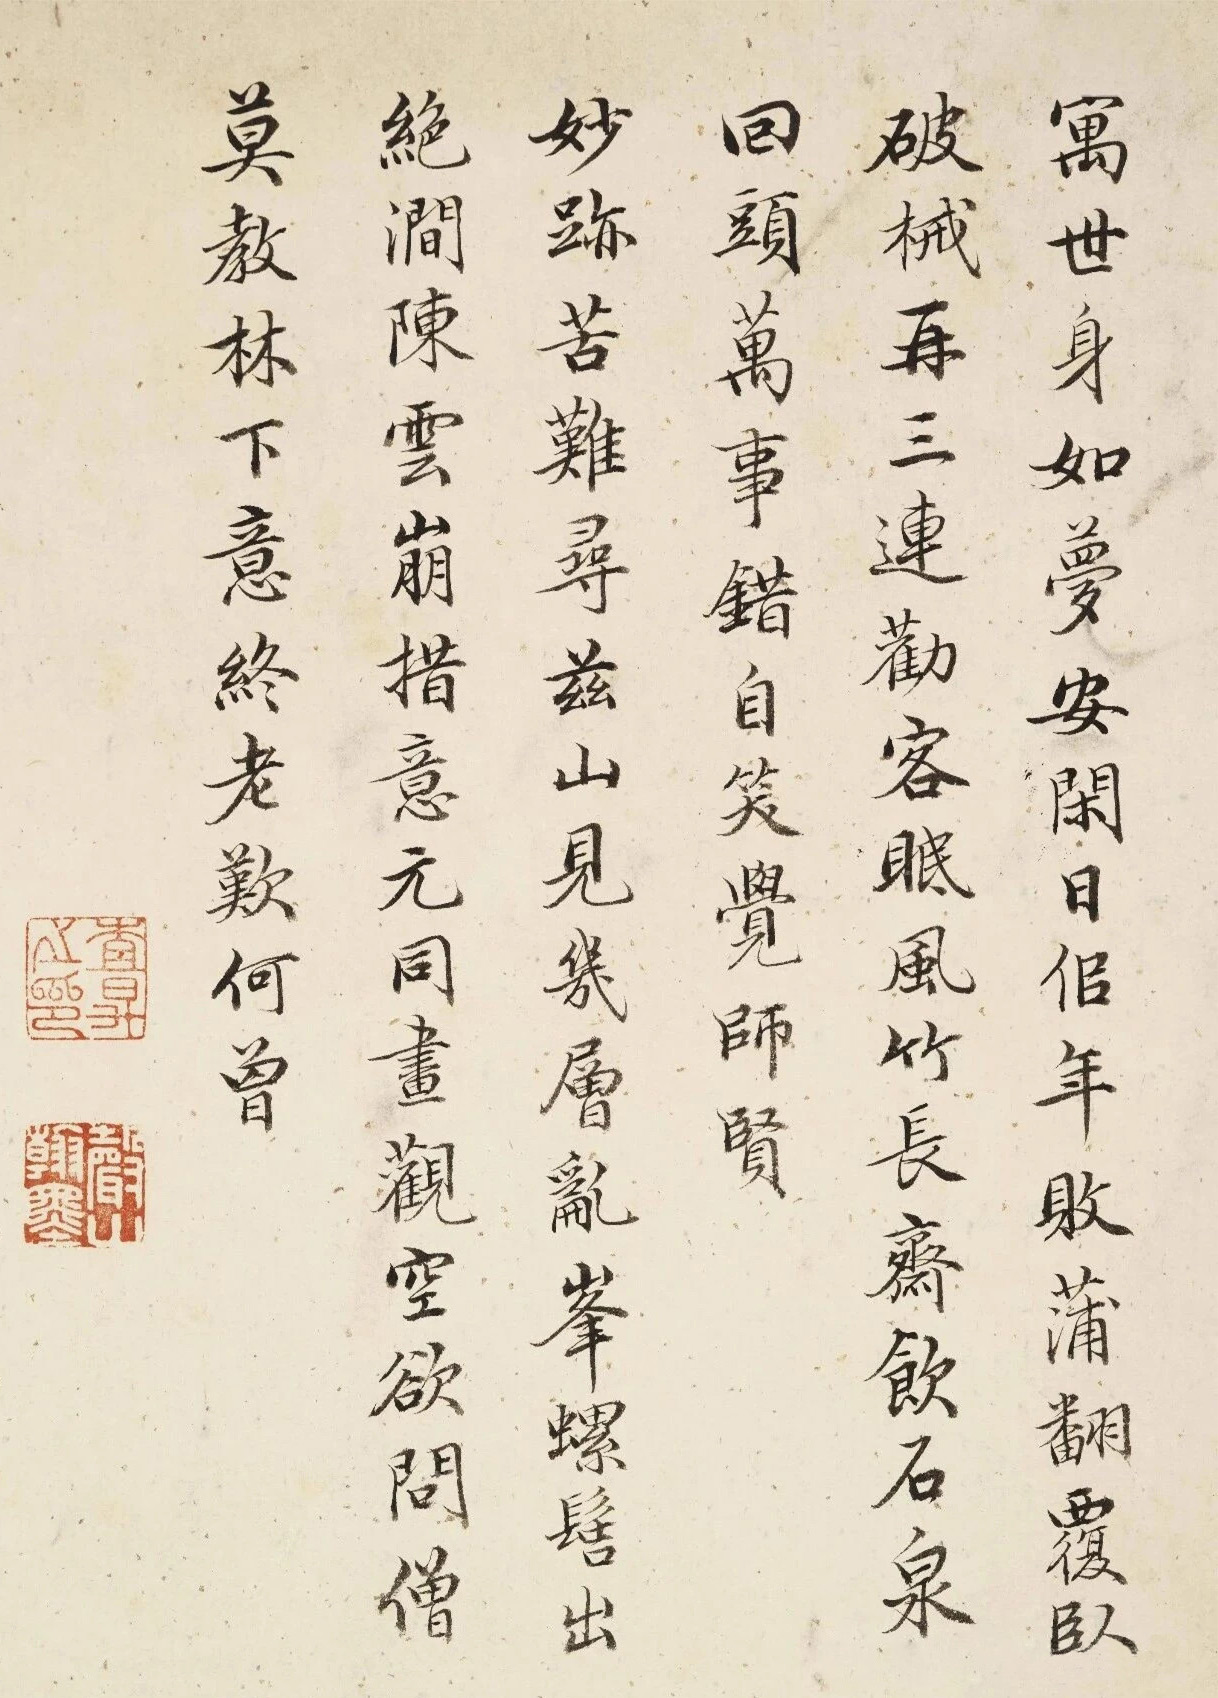 寓世身如夢安閑日佀年敗蒲翻覆臥
破械再三連勸客眂風竹長齋飲石泉
回頭萬事錯自笑覺師賢
妙跡苦難尋茲山見幾層亂峯螺髻出
絕澗陳雲崩措意元同畫觀空欲問僧
莫教林下意終老歎何曾